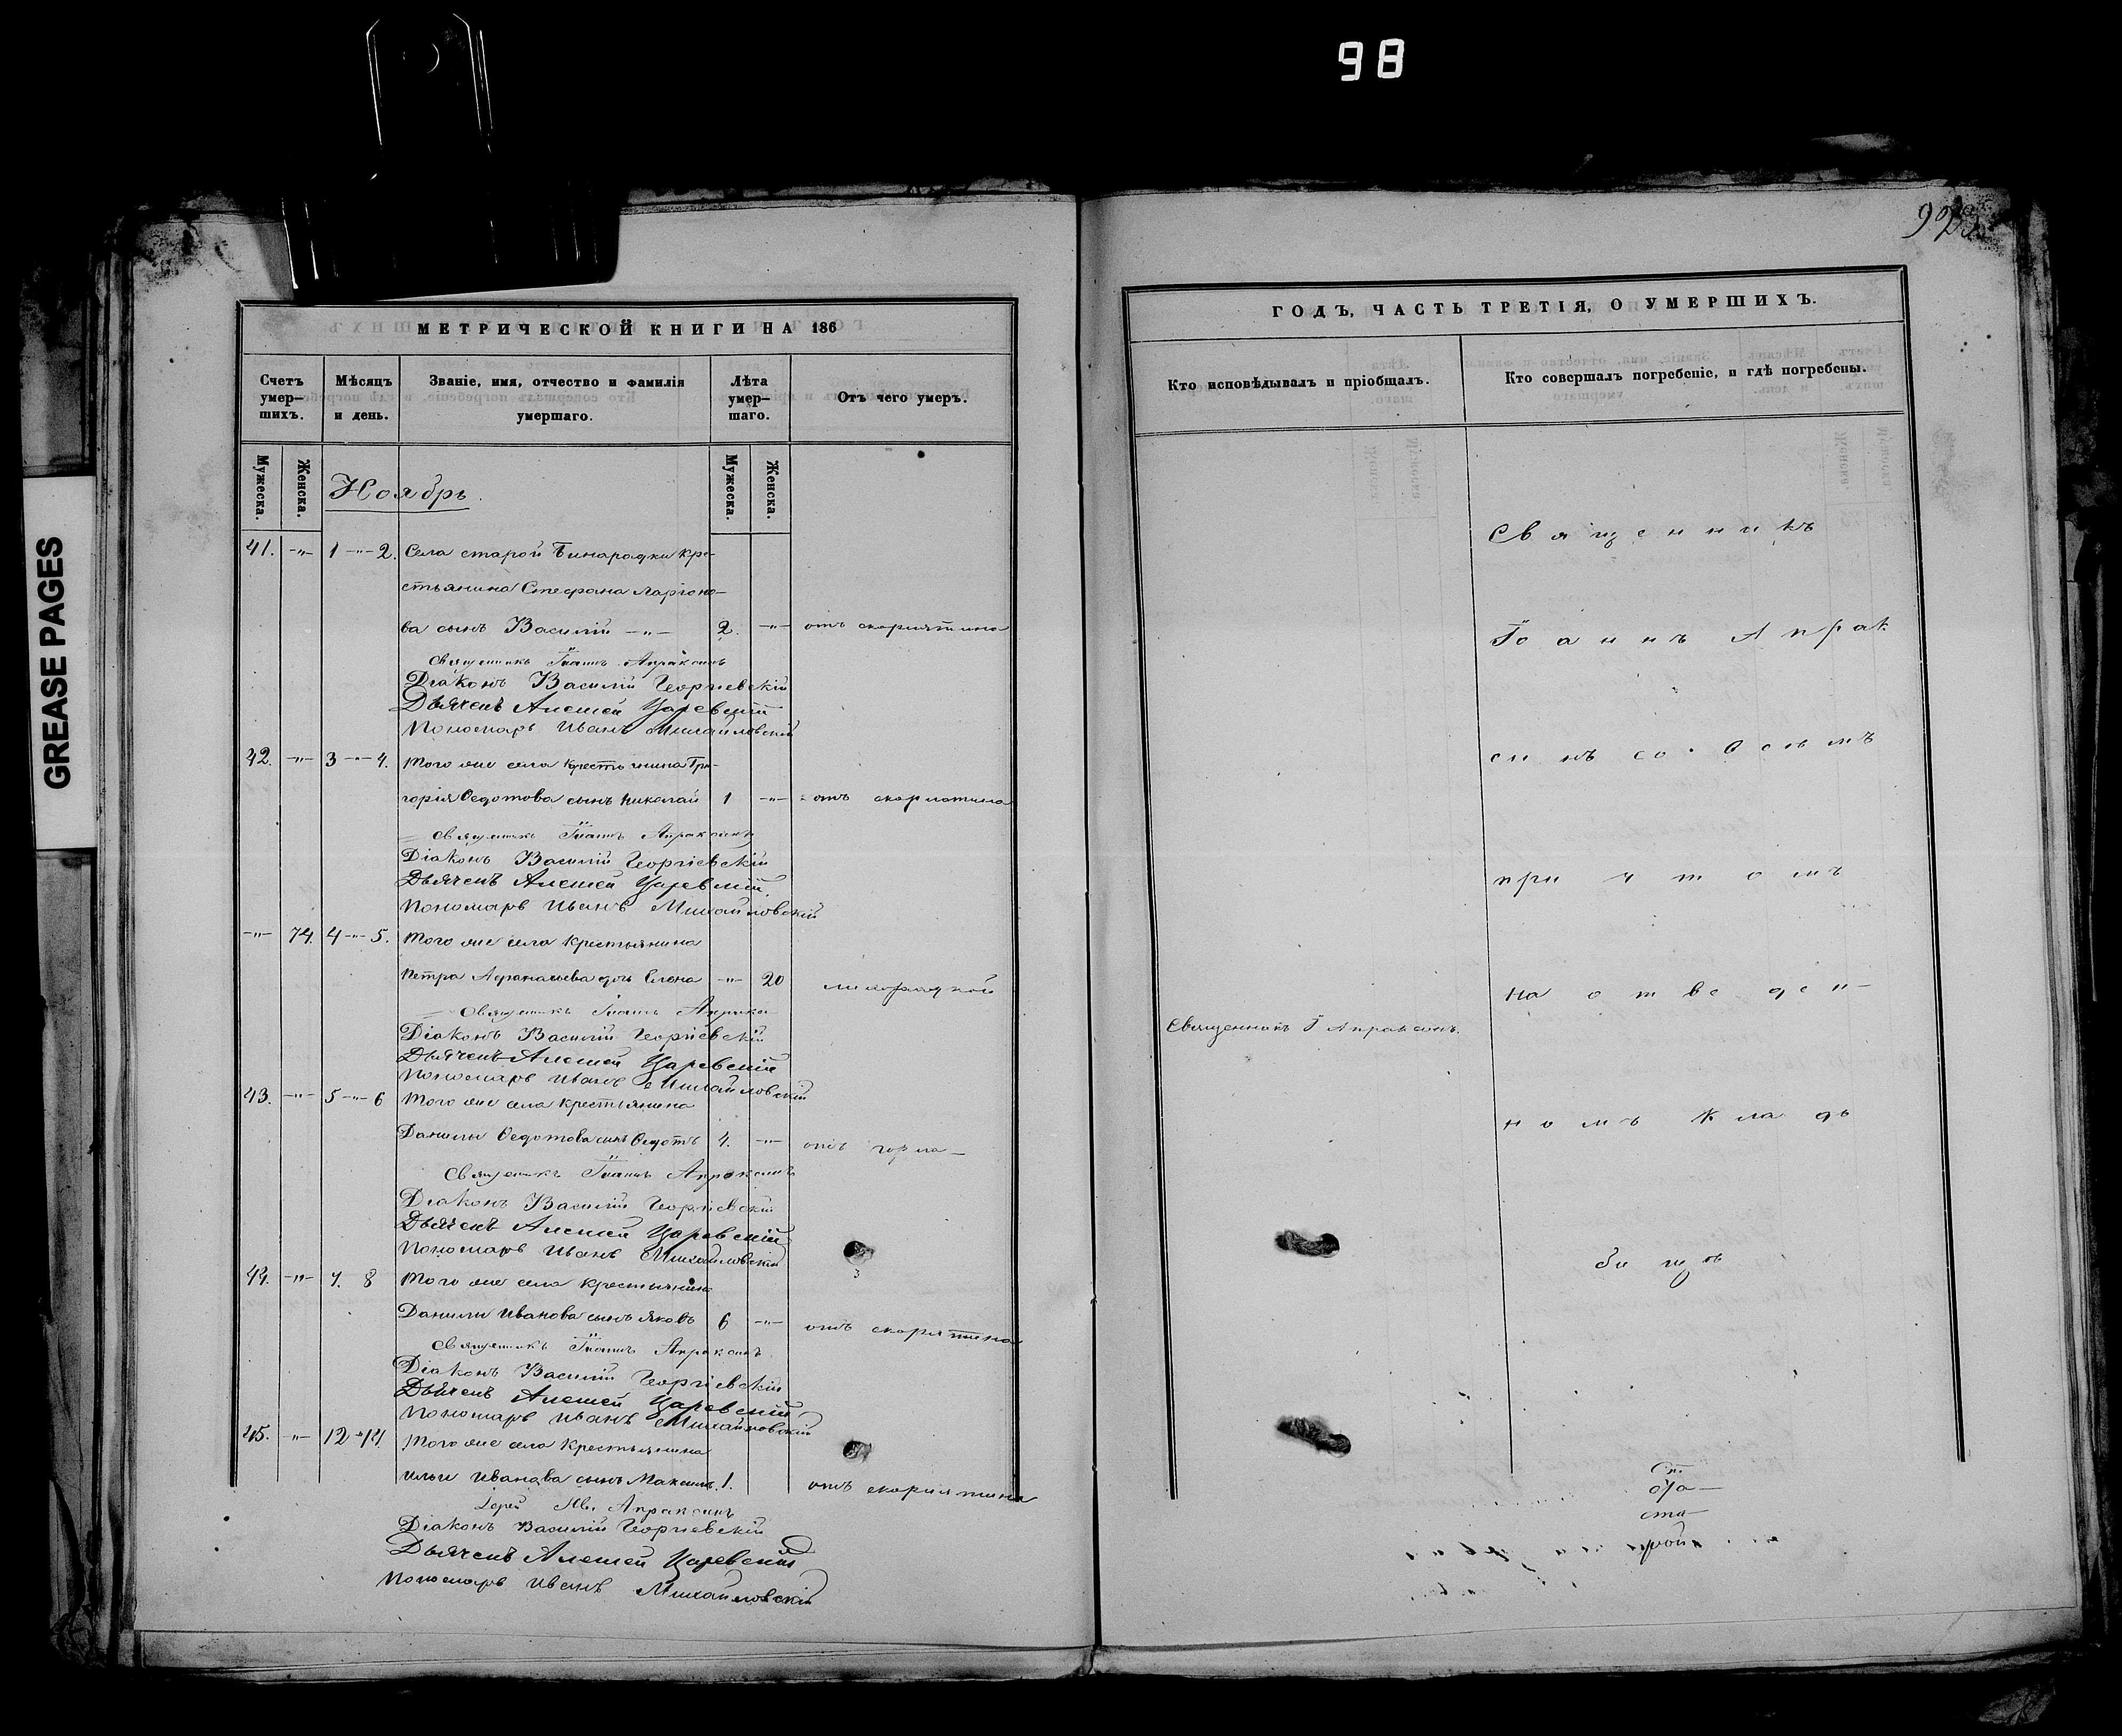 98
GREASE PAGES
МЕТРИЧЕСКОЙ КНИГИ НА 186
Счетъ умер-шихъ.
Мѣсяцъ и день.
Званіе, имя, отчество и фамилія умершаго.
Лѣта умер-шаго.
Отъ чего умеръ.
Мужеска.
Женска.
Мужеска.
Женска.
Ноябрь.
41. -"- 1 -"- 2. Села старой Бинарадки кре-
стьянина Стефана Ларіоно-
ва сынъ Василій -"- 2. -"- отъ скорлятина
Священникъ Іоаннъ Апраксинъ
Діаконъ Василій Георгіевскій
Дьячекъ Алексей Царевскій
Пономарь Иванъ Михайловскій
42. -"- 3 -"- 4. Того же села крестьянина Гри-
горія Федотова сынъ Николай 1 -"- отъ скорлотина
Священникъ Іоаннъ Апраксинъ
Діаконъ Василій Георгіевскій
Дьячекъ Алексей Царевскій
Пономарь Иванъ Михайловскій
-"- 74. 4 -"- 5. Того же села крестьянина
Петра Афанасьева дочь Елена -"- 20 лихорадкой
Священникъ Іоаннъ
Діаконъ Василій Георгіевскій
Дьячекъ Алексей Царевскій
Пономарь Иванъ Михайловскій
43. -"- 5 -"- 6 Того же села крестьянина
Данилы Федотова сынъ Федотъ 4. -"- отъ горла
Священникъ Іоаннъ Апраксинъ
Діаконъ Василій Георгіевскій
Дьячекъ Алексей Царевскій
Пономарь Иванъ Михайловскій
44. -"- 7. 8 Того же села крестьянина
Данилы Иванова сынъ Яковъ 6 -"- отъ скорлятина
Священникъ Іоаннъ Апраксинъ
Діаконъ Василій Георгіевскій
Дьячекъ Алексей Царевскій
Пономарь Иванъ Михайловскій
45. -"- 12 -"- 14. Того же села крестьянина
Ильи Иванова сынъ Максимъ 1. отъ скорлятина
Іерей Апраксинъ
Діаконъ Василій Георгіевскій
Дьячекъ Алексей Царевскій
Пономарь Иванъ Михайловскій
ГОДЪ, ЧАСТЬ ТРЕТІЯ, О УМЕРШИХЪ.
Кто исповѣдывалъ и пріобщалъ.
Кто совершалъ погребеніе, и гдѣ погребены.
Священникъ І Апраксинъ.
Священникъ
Іоаннъ Апрак
синъ со всѣмъ
причтомъ
на отведен-
номъ кладъ
бищѣ